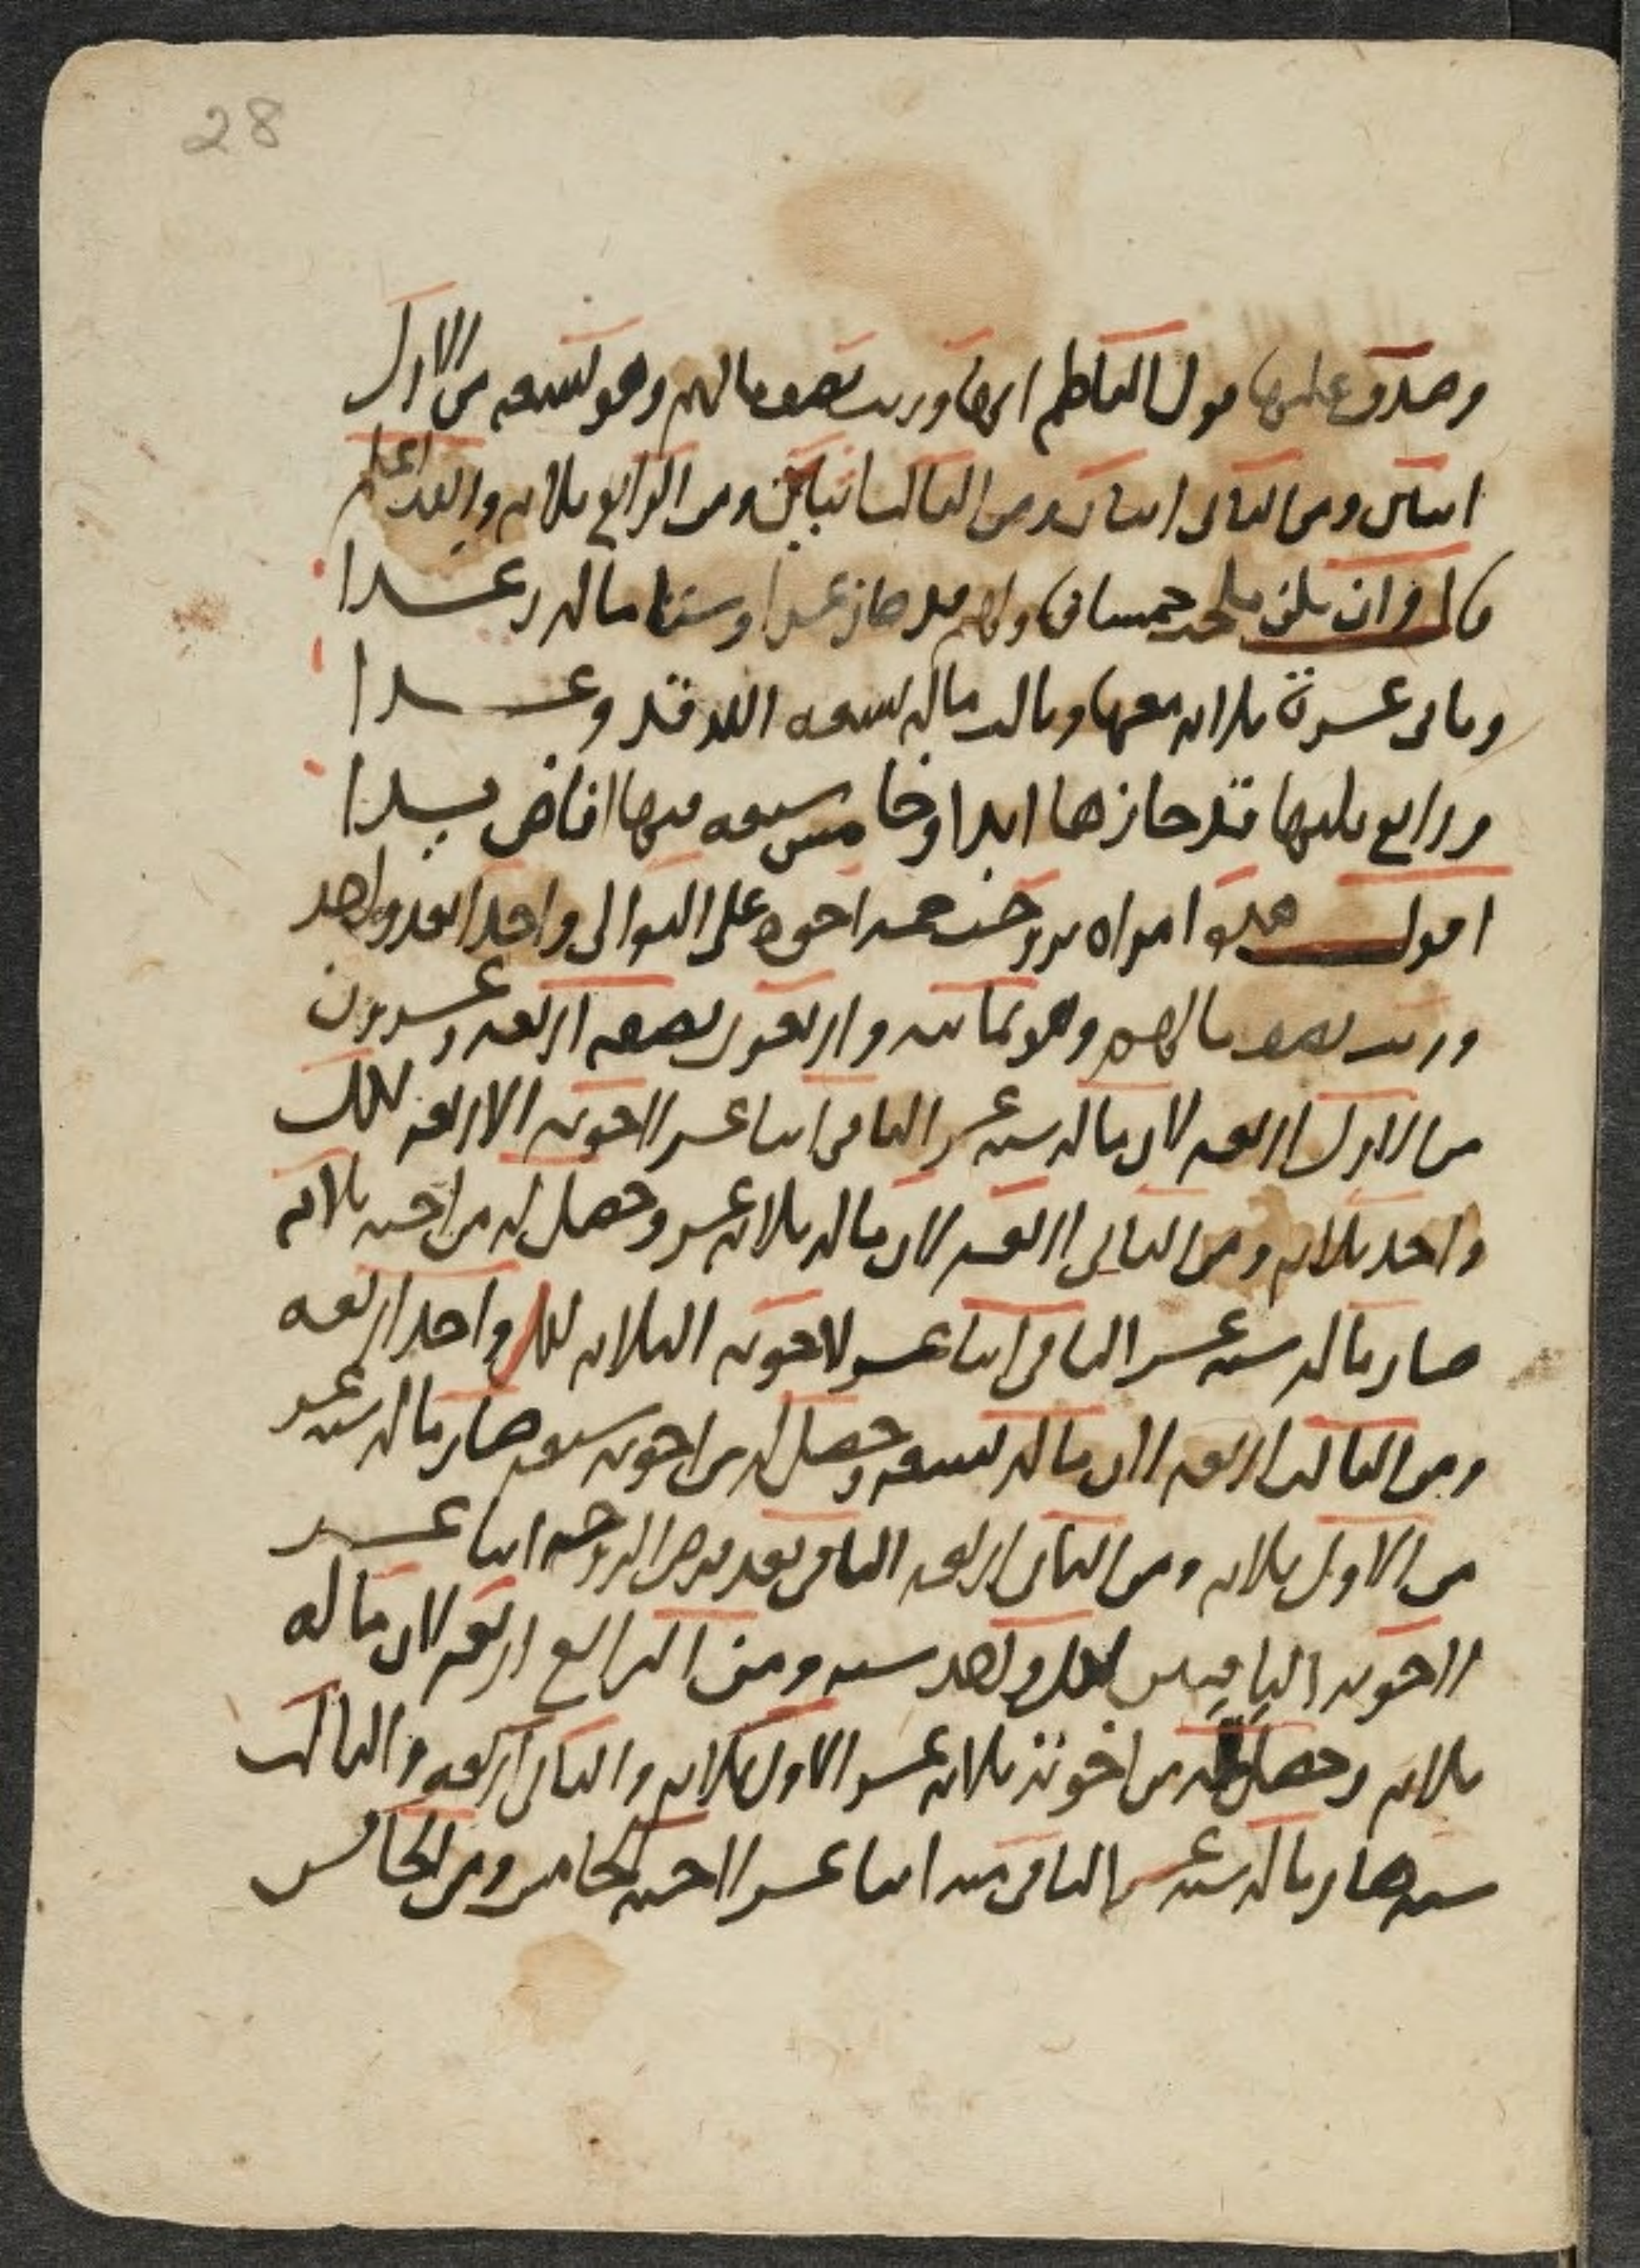 28
وصدق عليها قول الناظم انها ورثت نصف مالهم وهو تسعه من الاول
اثنان ومن الثاني اثنان ومن الثالث اثنان ومن الرابع ثلاثه والله اعلم
قال وان تلق خمسا فاولهم قد حاز عدا وستا ماله رغدا
وثاني عشرة ثلاثه معها وثالث ماله تسعه الله قد وعدا
ورابع يليها قد حازها ابدا وخامس سبعه فيها افاض يدا
اقول هذه امراه تزوجت خمسه اخوه على التوالي واحدا بعد واحد
ورثت نصف مالهم وهو ثمانيه واربعون نصفه اربعه وعشرون
من الاول اربعه لان ماله سته عشر الباقي اثنا عشر لاخوته الاربعه لكل
واحد ثلاثه ومن الثاني اربعه لان ماله ثلاثه عشر وحصل له من اخيه ثلاثه
صار ماله سته عشر الباقي اثنا عشر لاخوته الثلاثه لكل واحد اربعه
ومن الثالث اربعه لان ماله تسعه وحصل له من اخوته سبعه صار ماله سته عشر
من الاول ثلاثه ومن الثاني اربعه الباقي بعد فرض الزوجه اثنا عشر
لاخوته الباقيين لكل واحد سته ومن الرابع اربعه لان ماله
ثلاثه وحصل له من اخوته ثلاثه عشر الاول ثلاثه والثاني اربعه والثالث
سته صار ماله سته عشر الباقي منه اثنا عشر لاخيه الخامس ومن الخامس